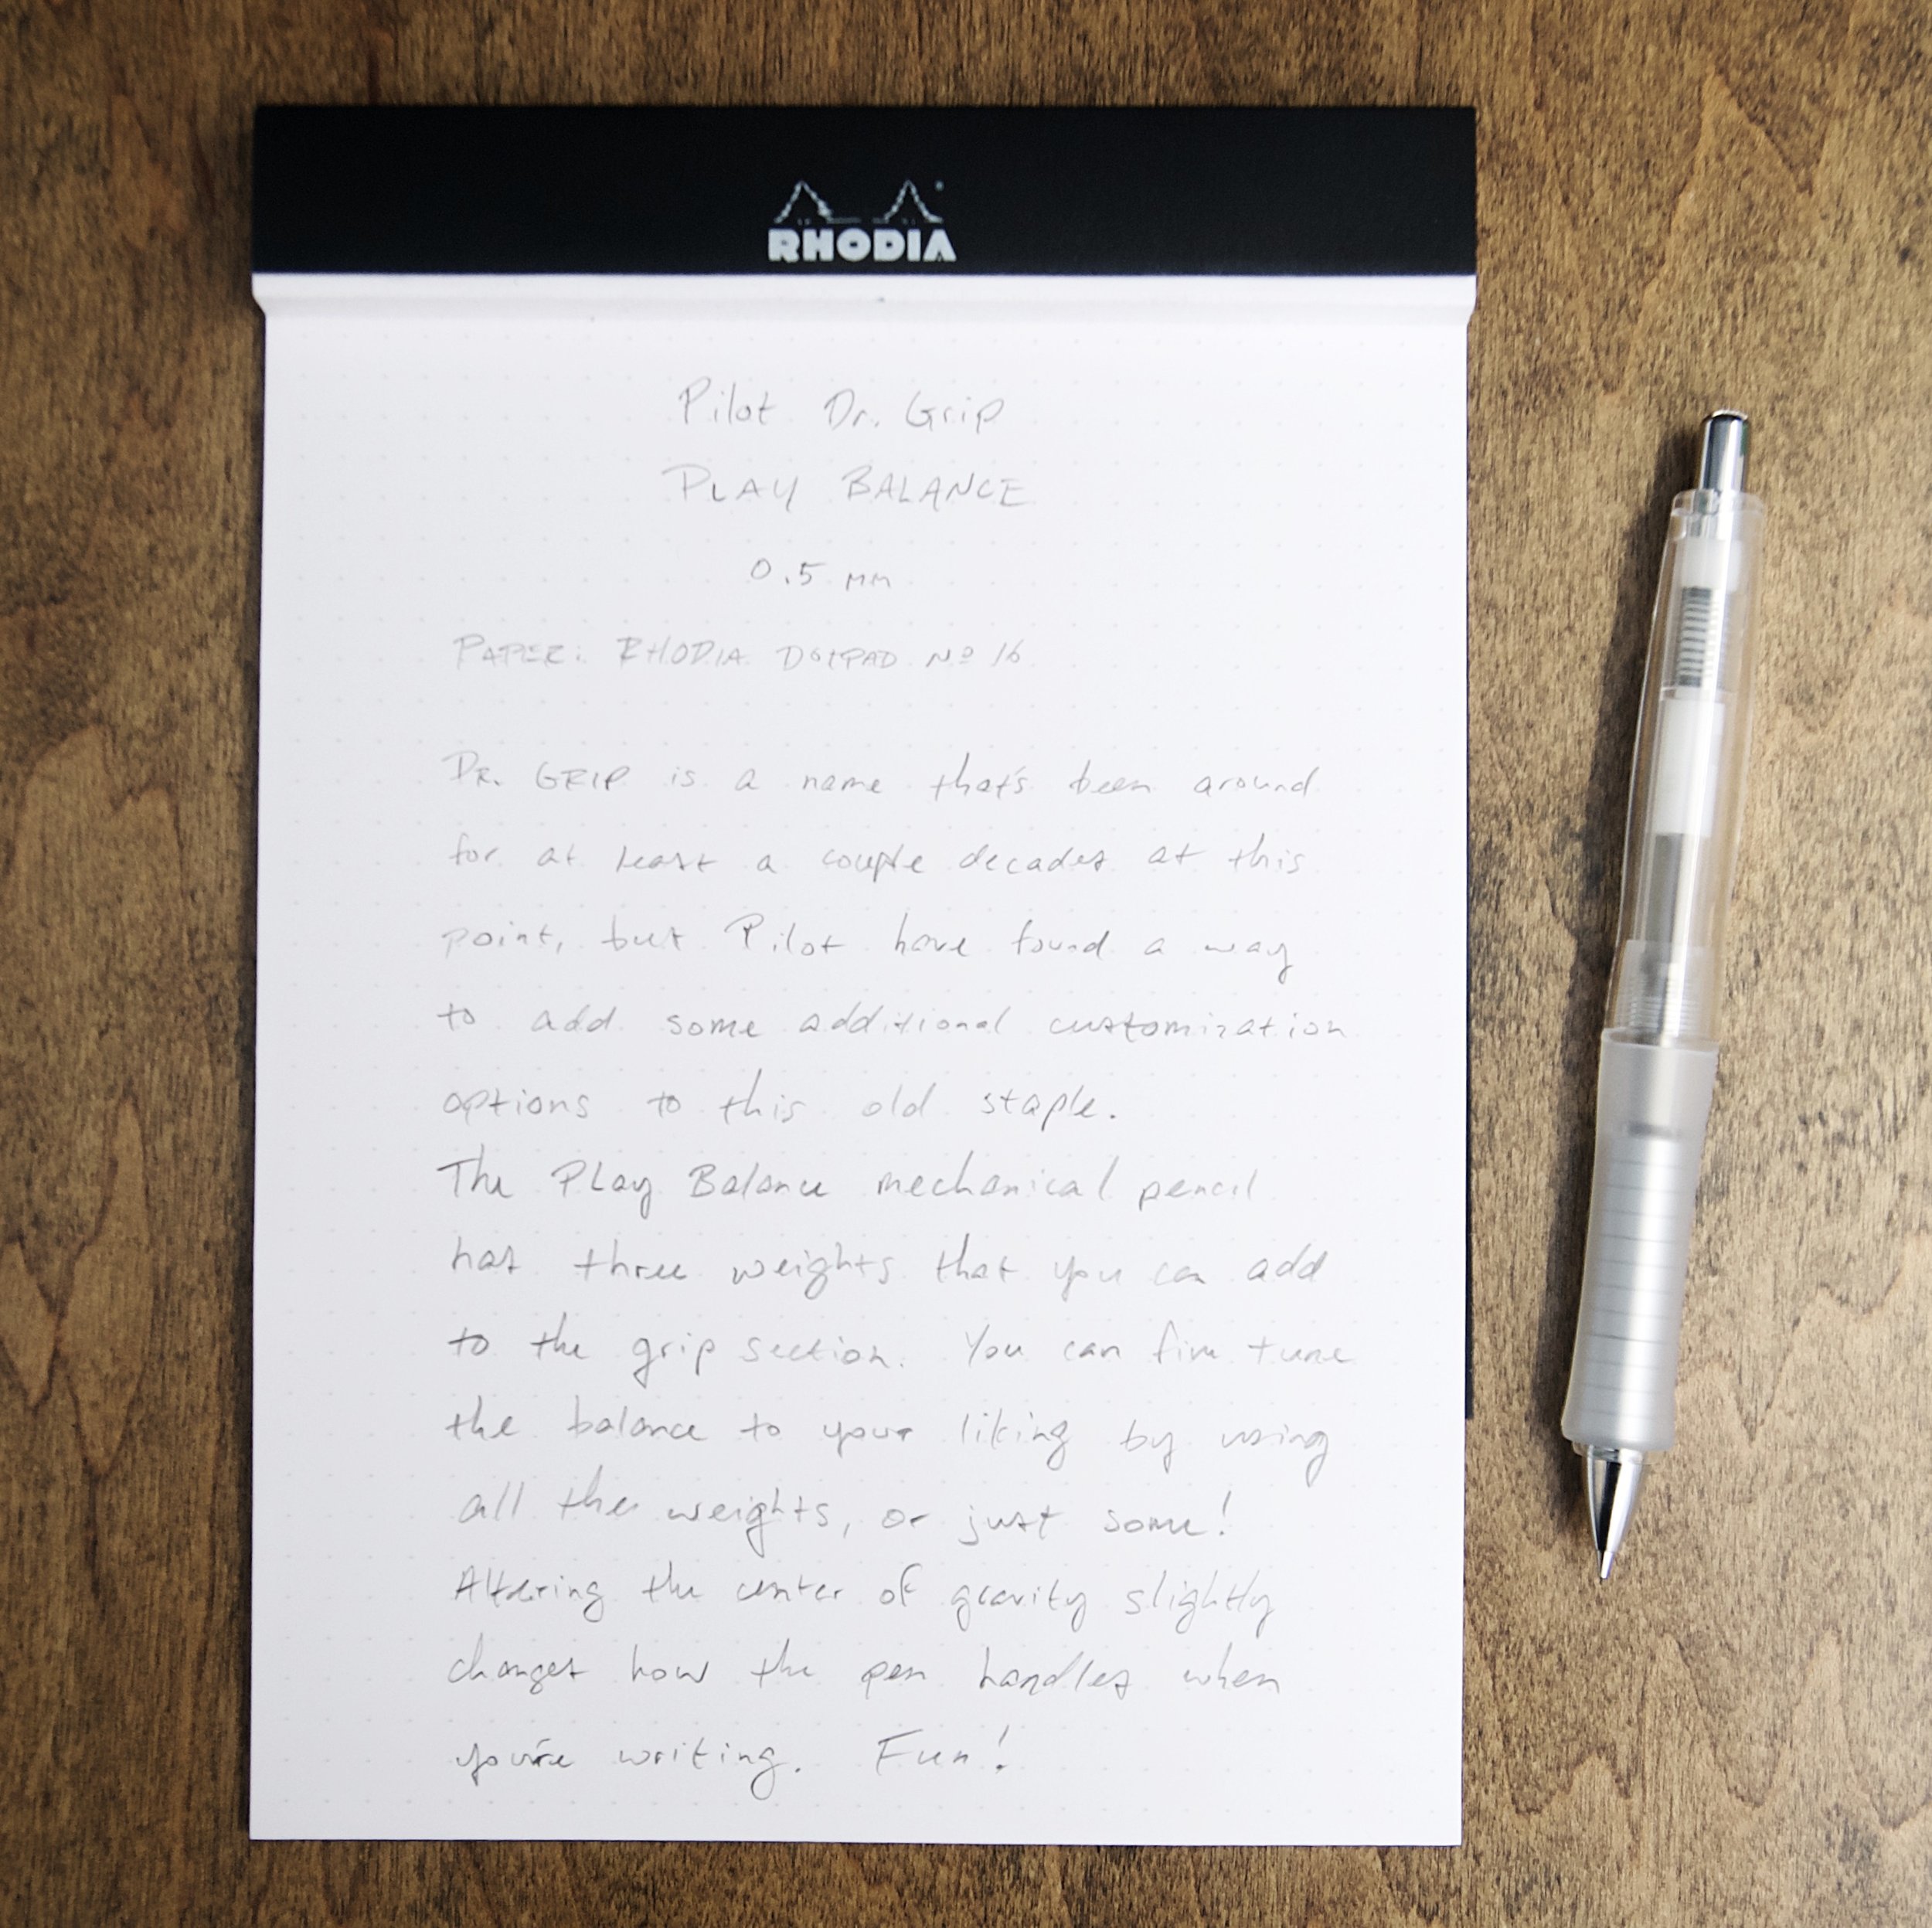 RHODIA
Pilot Dr. Grip
PLAY BALANCE
0.5 mm
PAPER: RHODIA DOTPAD Nº 16
DR. GRIP is a name that's been around
for at least a couple decades at this
point, but Pilot have found a way
to add some additional customization
options to this old staple.
The Play Balance mechanical pencil
has three weights that you can add
to the grip section. You can fine tune
the balance to your liking by using
all the weights, or just some!
Altering the center of gravity slightly
changes how the pen handles when
you're writing. Fun!